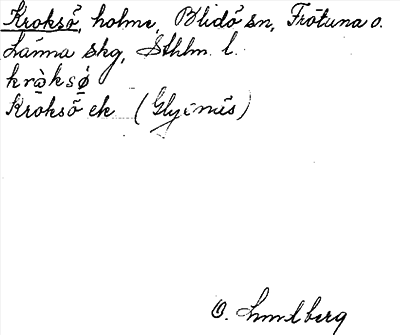 Kroksö, holme, Blidö sn, Frötuna o.
Länna skg, Sthlm. l.
kråksø
Kroksö ek (Glyxnäs)
O. Lundberg